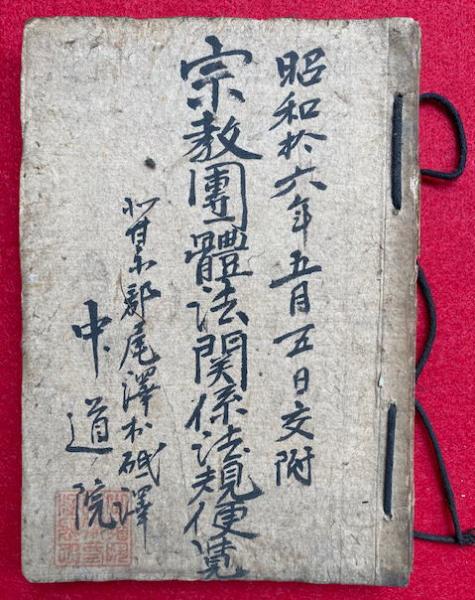 昭和拾六年五月五日交附
宗教團體法関係法規便覧
北甘楽郡尾澤村砥澤
中道院